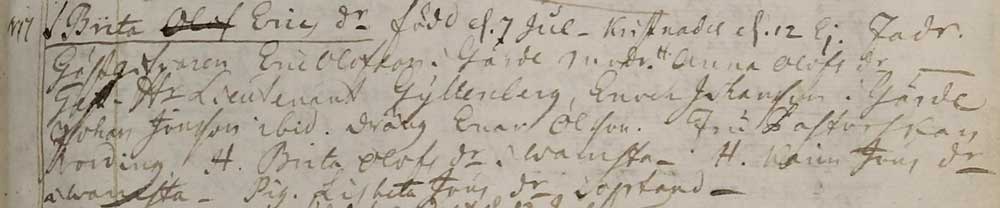 Brita Olof Erics dr född d. 7 Jul- Kristnades d. 12 Ej. Fadr.
Gästgifvaren Eric Olofson i Gärde modr. H. Anna Olofs dr
Test- Hr Lieutenant Gyllenberg, Enoch Johanson i Gärde
Johan Jonson ibid. dräng Enar Olson. Fru Pastorskan
Nording H. Brita Olofs dr i wamsta- H. Karin Jons dr
i wamsta- Pig. Lisbeta Jons dr